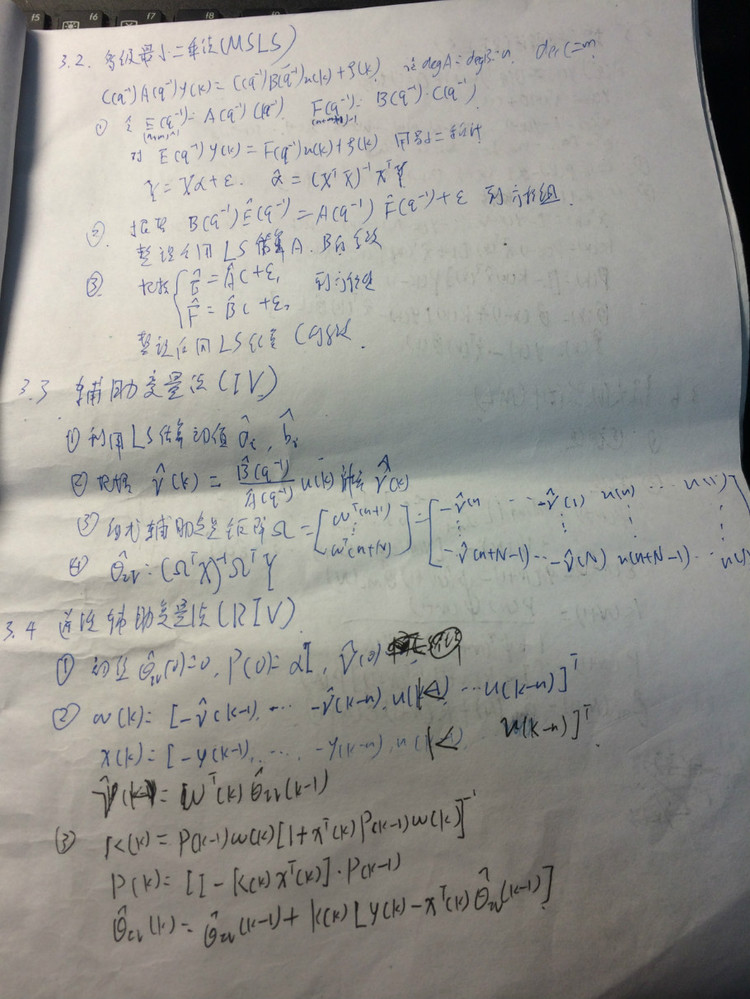 f5 f6 f7 f8
3.2. 多级最小二乘法(MSLS)
C(q⁻¹)A(q⁻¹)y(k)=C(q⁻¹)B(q⁻¹)u(k)+ξ(k). 设degA=degB=n. degC=m
① 令 E(q⁻¹)=A(q⁻¹)C(q⁻¹) F(q⁻¹)=B(q⁻¹)·C(q⁻¹)
对 E(q⁻¹)y(k)=F(q⁻¹)u(k)+ξ(k) 用最小二乘估计
Y=Xα+ε. α̂=(XᵀX)⁻¹XᵀY
② 根据 B(q⁻¹)Ê(q⁻¹)=A(q⁻¹)F̂(q⁻¹)+ε 列方程组.
整理后用LS估算A、B的系数
③ 根据{Ê=ÂC+ε₁ 列方程组
F̂=B̂C+ε₂
整理后用LS估算C的系数.
3.3 辅助变量法(IV)
①利用LS估算初值 âᵢ, b̂ᵢ
② 根据 v̂(k)=B̂(q⁻¹)/Â(q⁻¹) u(k) 计算 v̂(k)
③ 辅助变量矩阵Ω=[ωᵀ(n+1) ⋮ ωᵀ(n+N)]=[-v̂(n) ⋯ -v̂(1) u(n) ⋯ u(1)
⋮ ⋮ ⋮ ⋮
-v̂(n+N-1)⋯-v̂(N) u(n+N-1)⋯
④ θ̂IV=(ΩᵀX)⁻¹ΩᵀY
3.4 递推辅助变量法(RIV)
① 初值 θ̂IV(0)=0, P(0)=αI, v̂(0)
② ω(k)=[-v̂(k-1), ⋯ -v̂(k-n), u(k-1) ⋯u(k-n)]ᵀ
x(k)=[-y(k-1), ⋯, -y(k-n), u(k-1) u(k-n)]ᵀ
v̂(k)=ωᵀ(k)θ̂IV(k-1)
③ K(k)=P(k-1)ω(k)[1+xᵀ(k)P(k-1)ω(k)]⁻¹
P(k)=[I-K(k)xᵀ(k)]·P(k-1)
θ̂IV(k)=θ̂IV(k-1)+K(k)[y(k)-xᵀ(k)θ̂IV(k-1)]